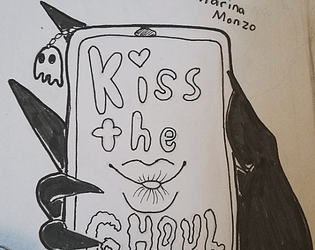 Marina
Monzo
Kiss
the
GHOUL